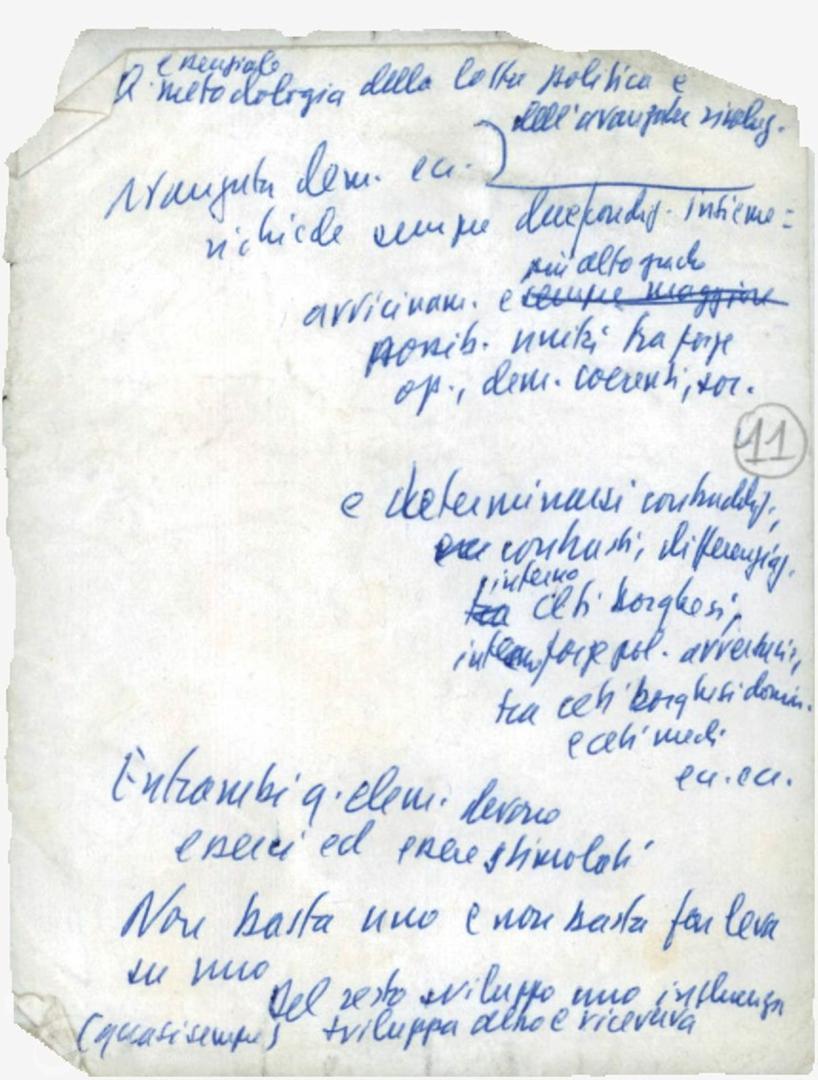 essenziale
Q. metodologia della lotta politica e
dell'avanguha rivolug.
Avanguha dem. ecc.
richiede sempre due condiz. insieme:
più alto grado
avvicinam. e sempre maggiore
possib. unità tra forze
op., dem. coerenti, soc.
11
e determinarsi contraddiz.,
contrasti, differenziaz.
interno
tra ceti borghesi,
interno forze pol. avversarie,
tra ceti borghesi domin.
e ceti medi
ecc. ecc.
Entrambi q. elem. devono
esserci ed essere stimolati
Non basta uno e non basta far leva
su uno
Del resto sviluppo uno influenza
(quasi sempre) sviluppo altro e viceversa